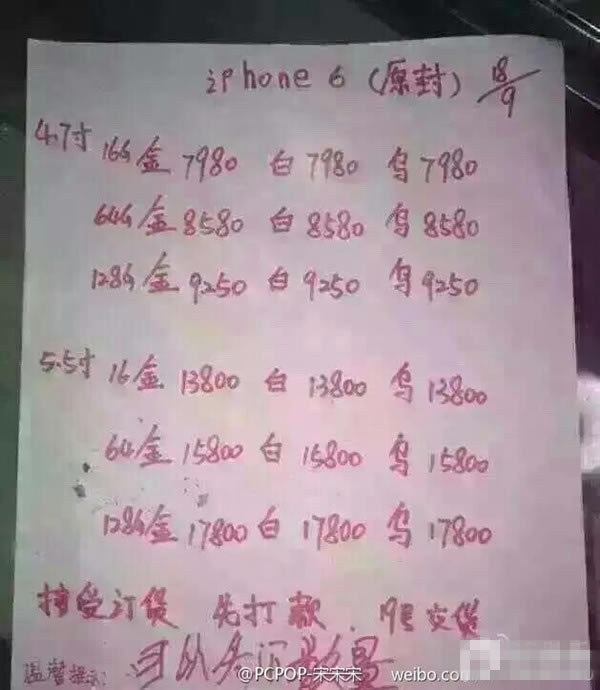 iPhone 6 (原封) 18/9
4.7寸 16G 金 7980 白 7980 乌 7980
64G 金 8580 白 8580 乌 8580
128G 金 9250 白 9250 乌 9250
5.5寸 16 金 13800 白 13800 乌 13800
64 金 15800 白 15800 乌 15800
128G 金 17800 白 17800 乌 17800
接受订货 先打款、19号交货
温馨提示: 数量
@PCPOP-宋宋宋 weibo.com